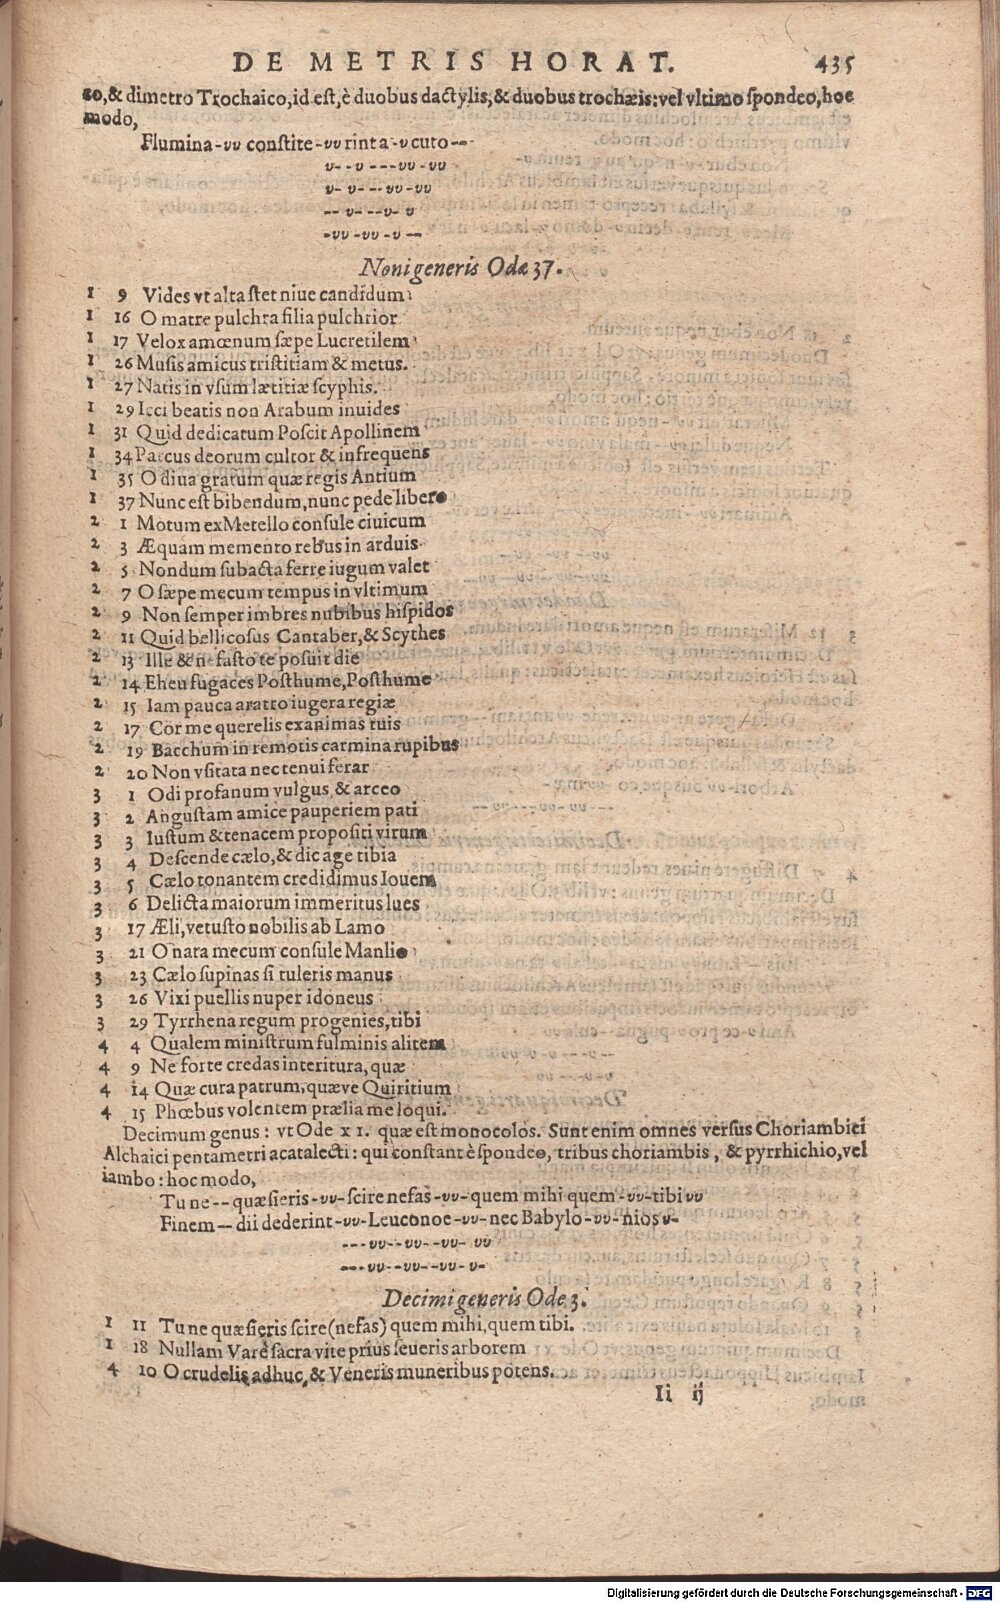 DE METRIS HORAT. 435
co, & dimetro Trochaico, id est, è duobus dactylis, & duobus trochæis: vel vltimo spondeo, hoc
modo,
Flumina -υυ constite -υυ rint a -υ cuto --
υ- -υ - ---υυ -υυ
υ- υ- -- -υυ -υυ
-- υ- --υ- υ
-υυ -υυ -υ --
Noni generis Odæ 37.
1 9 Vides vt alta stet niue candidum
1 16 O matre pulchra filia pulchrior
1 17 Velox amœnum sæpe Lucretilem
1 26 Musis amicus tristitiam & metus.
1 27 Natis in vsum lætitiæ scyphis.
1 29 Icci beatis non Arabum inuides
1 31 Quid dedicatum Poscit Apollinem
1 34 Parcus deorum cultor & infrequens
1 35 O diua gratum quæ regis Antium
1 37 Nunc est bibendum, nunc pede libero
2 1 Motum ex Metello consule ciuicum
2 3 Æquam memento rebus in arduis
2 5 Nondum subacta ferre iugum valet
2 7 O sæpe mecum tempus in vltimum
2 9 Non semper imbres nubibus hispidos
2 11 Quid bellicosus Cantaber, & Scythes
2 13 Ille & nefasto te posuit die
2 14 Eheu fugaces Posthume, Posthume
2 15 Iam pauca aratro iugera regiæ
2 17 Cor me querelis exanimas tuis
2 19 Bacchum in remotis carmina rupibus
2 20 Non vsitata nec tenui ferar
3 1 Odi profanum vulgus, & arceo
3 2 Angustam amice pauperiem pati
3 3 Iustum & tenacem propositi virum
3 4 Descende cælo, & dic age tibia
3 5 Cælo tonantem credidimus Iouem
3 6 Delicta maiorum immeritus lues
3 17 Æli, vetusto nobilis ab Lamo
3 21 O nata mecum consule Manlio
3 23 Cælo supinas si tuleris manus
3 26 Vixi puellis nuper idoneus
3 29 Tyrrhena regum progenies, tibi
4 4 Qualem ministrum fulminis alitem
4 9 Ne forte credas interitura, quæ
4 14 Quæ cura patrum, quæve Quiritium
4 15 Phœbus volentem prælia me loqui.
Decimum genus: vt Ode XI. quæ est monocolos. Sunt enim omnes versus Choriambici
Alchaici pentametri acatalecti: qui constant è spondeo, tribus choriambis, & pyrrhichio, vel
iambo: hoc modo,
Tu ne -- quæsieris -υυ- scire nefas -υυ- quem mihi quem -υυ- tibi υυ
Finem -- dii dederint -υυ- Leuconoe -υυ- nec Babylo -υυ- nios υ-
-- -υυ- -υυ- -υυ- υυ
-- -υυ- -υυ- -υυ- υ-
Decimi generis Ode 3.
1 11 Tu ne quæsieris scire (nefas) quem mihi, quem tibi.
1 18 Nullam Vare sacra vite prius seueris arborem
4 10 O crudelis adhuc, & Veneris muneribus potens.
Ii ij
Digitalisierung gefördert durch die Deutsche Forschungsgemeinschaft - DFG